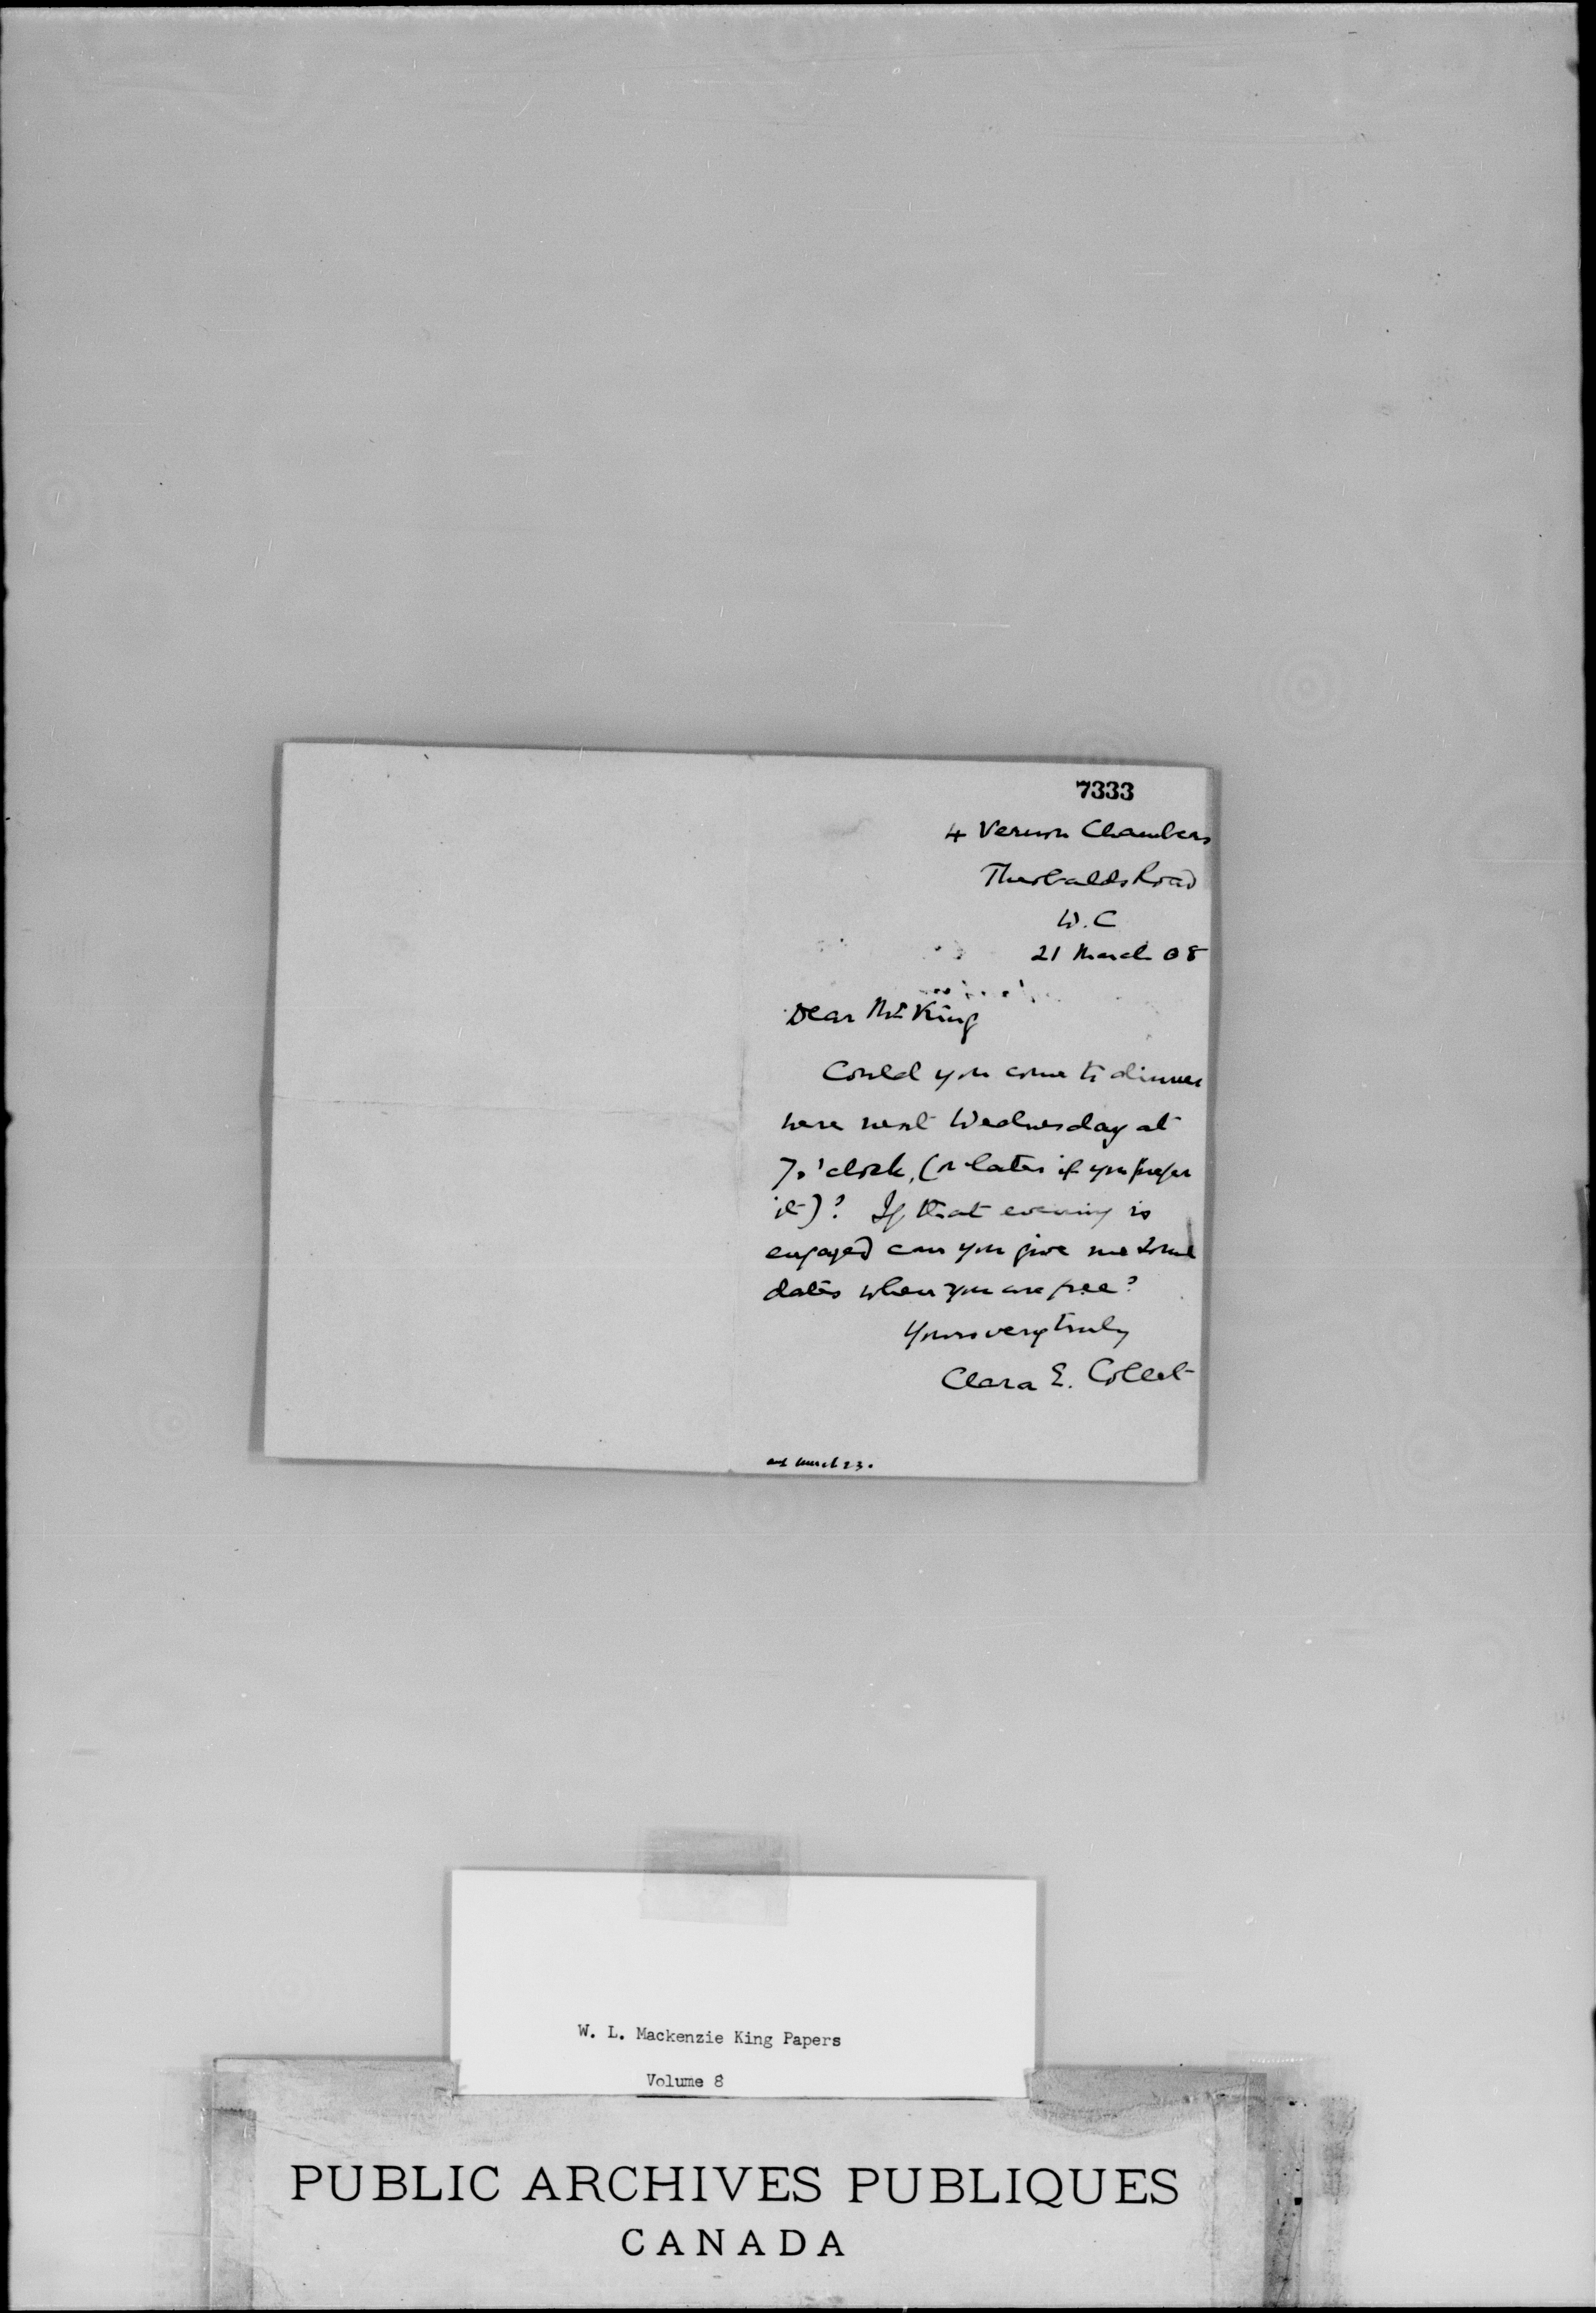 7333
4 Vernon Chambers
Theobalds Road
W.C
21 March 08
Dear Mr King
Could you come to dinner
here next Wednesday at
7 o'clock, (or later if you prefer
it)? If that evening is
engaged can you give me some
dates when you are free?
Yours very truly
Clara E. Collet
March 23.
W. L. Mackenzie King Papers
Volume 8
PUBLIC ARCHIVES PUBLIQUES
CANADA